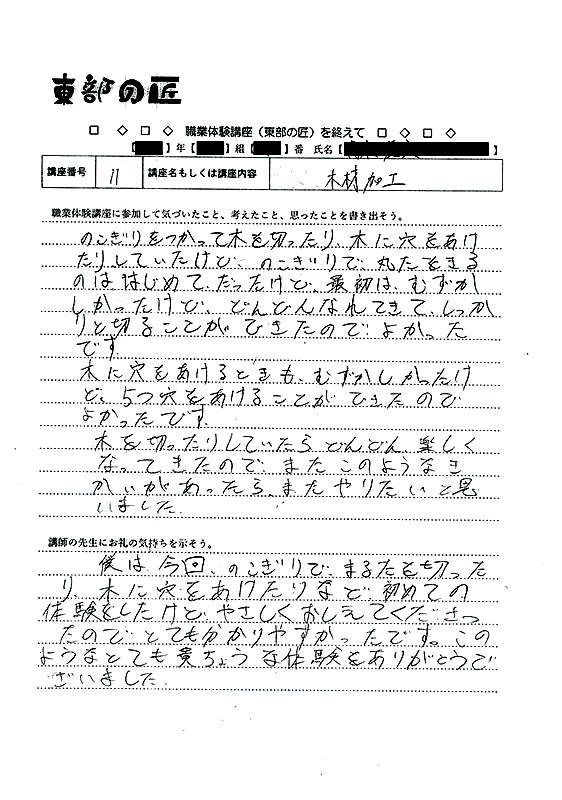 東部の匠
□ ◇ □ ◇ 職業体験講座（東部の匠）を終えて □ ◇ □ ◇
【 】年【 】組【 】番 氏名【 】
講座番号 11 講座名もしくは講座内容 木材加工
職業体験講座に参加して気づいたこと、考えたこと、思ったことを書き出そう。
のこぎりをつかって木を切ったり、木に穴をあけ
たりしていたけど、のこぎりで、丸たをきる
のははじめて、だったけど、最初は、むずか
しかったけど、どんどんなれてきて、しっか
りと切ることができたのでよかった
です。
木に穴をあけるときも、むずかしかったけ
ど、5つ穴をあけることができたので
よかったです。
木を切ったりしていたらどんどん楽しく
なってきたので、またこのようなき
かいがあったら、またやりたいと思
いました。
講師の先生にお礼の気持ちを示そう。
僕は今回、のこぎりで、まるたを切った
り、木に穴をあけたりなど、初めての
体験をしたけど、やさしくおしえてくださっ
たので、とても分かりやすかったです。この
ようなとても貴ちょうな体験をありがとうご
ざいました。